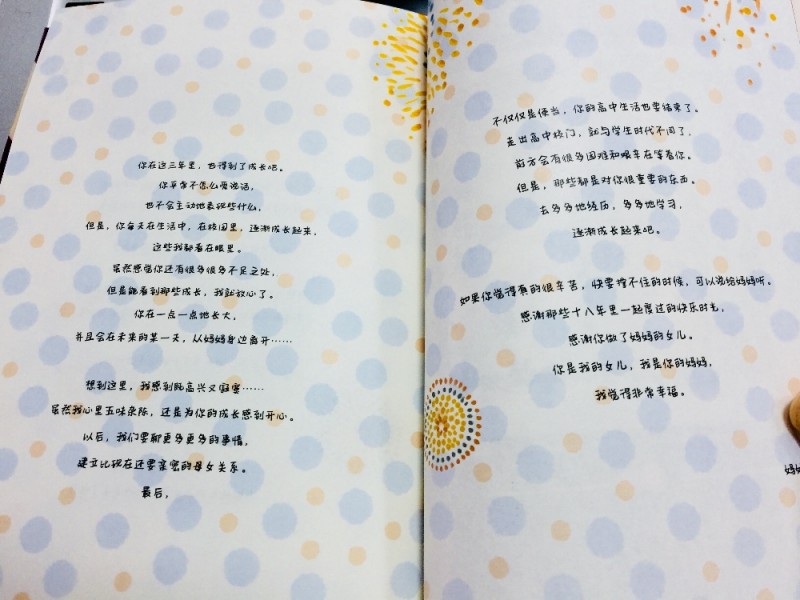 你在这三年里，也得到了成长吧。
你平常不怎么爱说话，
也不会主动地表现些什么，
但是，你每天在生活中，在校园里，逐渐成长起来，
这些我都看在眼里。
虽然感觉你还有很多很多不足之处，
但是能看到那些成长，我就放心了。
你在一点一点地长大，
并且会在未来的某一天，从妈妈身边离开……
想到这里，我感到既高兴又寂寞……
虽然我心里五味杂陈，还是为你的成长感到开心。
以后，我们要聊更多更多的事情，
建立比现在还要亲密的母女关系。
最后，
不仅仅是便当，你的高中生活也要结束了。
走出高中校门，就与学生时代不同了，
前方会有很多困难和艰辛在等着你。
但是，那些都是对你很重要的东西。
去多多地经历，多多地学习，
逐渐成长起来吧。
如果你觉得真的很辛苦，快要撑不住的时候，可以说给妈妈听。
感谢那些十八年里一起度过的快乐时光，
感谢你做了妈妈的女儿。
你是我的女儿，我是你的妈妈，
我觉得非常幸福。
妈妈